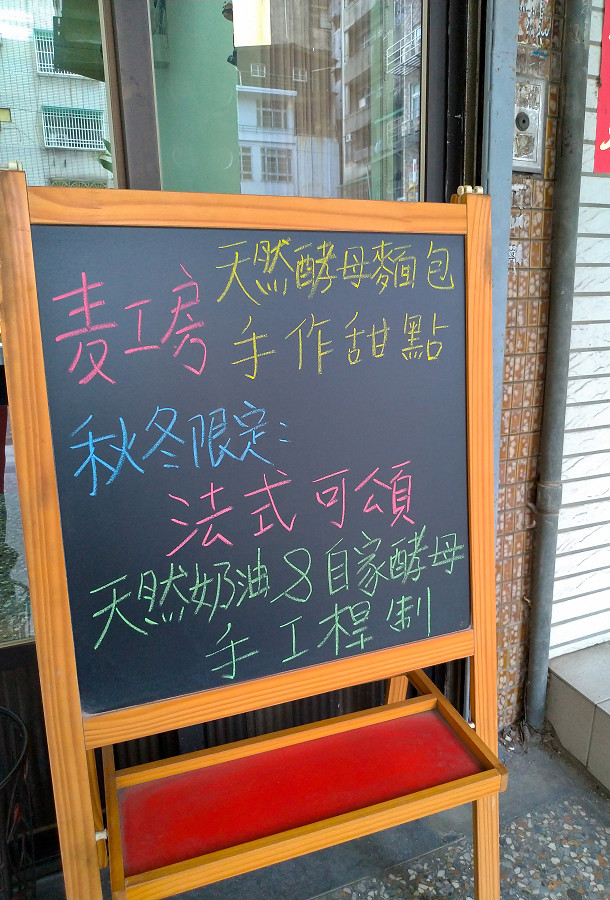 麦工房
天然酵母麵包
手作甜點
秋冬限定:
法式可頌
天然奶油&自家酵母
手工桿制